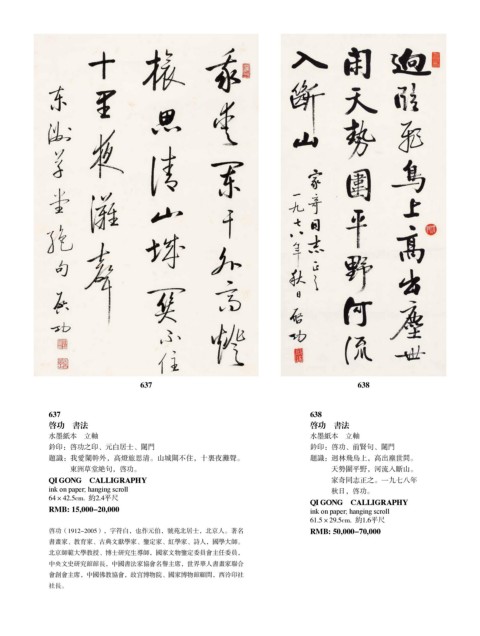 我愛闌干外高燈
旅思清山城關不住
十里夜灘聲
东洲草堂絕句 啟功
迥臨飛鳥上高出塵世
間天勢圍平野河流
入斷山
家奇同志正之
一九七八年秋日 啟功
637
638
637
啓功 書法
水墨紙本 立軸
鈐印：啓功之印、元白居士、閹門
題識：我愛闌幹外，高燈旅思清。山城關不住，十裏夜灘聲。
東洲草堂絕句，啓功。
QI GONG CALLIGRAPHY
ink on paper; hanging scroll
64 × 42.5cm. 約2.4平尺
RMB: 15,000–20,000
啓功（1912~2005），字符白，也作元伯，號苑北居士，北京人。著名
書畫家、教育家、古典文獻學家、鑒定家、紅學家、詩人，國學大師。
北京師範大學教授、博士研究生導師，國家文物鑒定委員會主任委員，
中央文史研究館館長，中國書法家協會名譽主席，世界華人書畫家聯合
會創會主席，中國佛教協會，故宮博物院、國家博物館顧問，西泠印社
社長。
638
啓功 書法
水墨紙本 立軸
鈐印：啓功、前賢句、閹門
題識：迥林飛鳥上，高出塵世間。
天勢圍平野，河流入斷山。
家奇同志正之。一九七八年
秋日，啓功。
QI GONG CALLIGRAPHY
ink on paper; hanging scroll
61.5 × 29.5cm. 約1.6平尺
RMB: 50,000–70,000